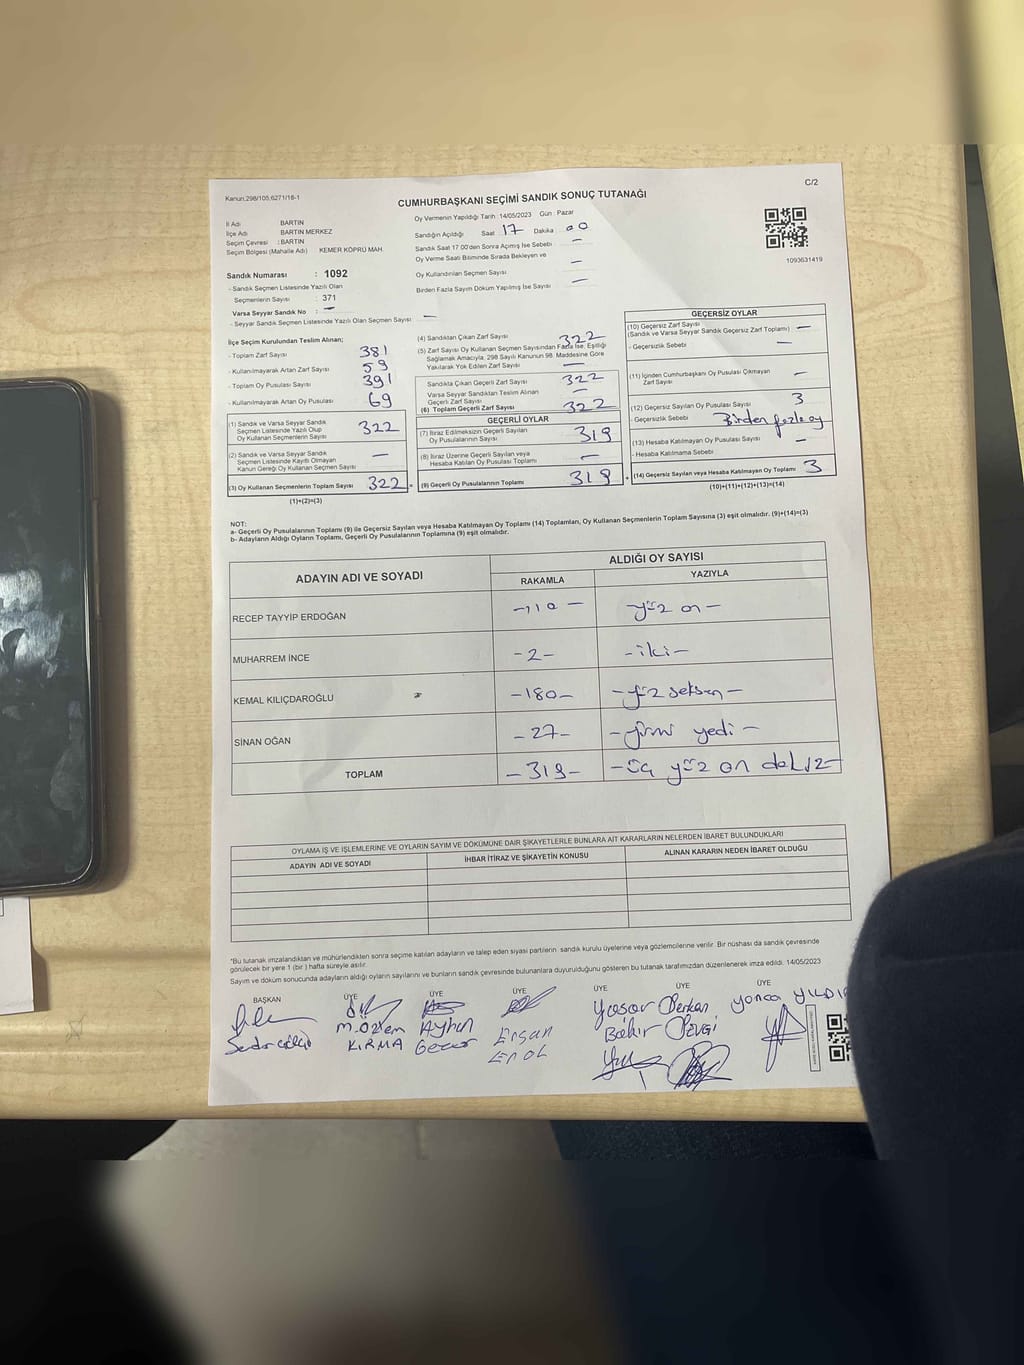 Kanun,298/105,6271/18-1
C/2
CUMHURBAŞKANI SEÇİMİ SANDIK SONUÇ TUTANAĞI
İl Adı BARTIN
İlçe Adı BARTIN MERKEZ
Seçim Çevresi : BARTIN
Seçim Bölgesi (Mahalle Adı) KEMER KÖPRÜ MAH.
Sandık Numarası : 1092
- Sandık Seçmen Listesinde Yazılı Olan
Seçmenlerin Sayısı : 371
Varsa Seyyar Sandık No : —
- Seyyar Sandık Seçmen Listesinde Yazılı Olan Seçmen Sayısı —
Oy Vermenin Yapıldığı Tarih : 14/05/2023 Gün : Pazar
Sandığın Açıldığı Saat 17 Dakika 00
Sandık Saat 17.00'den Sonra Açımış İse Sebebi —
Oy Verme Saati Bitiminde Sırada Bekleyen ve
Oy Kullandırılan Seçmen Sayısı —
Birden Fazla Sayım Döküm Yapılmış İse Sayısı —
1093631419
İlçe Seçim Kurulundan Teslim Alınan;
- Toplam Zarf Sayısı 381
- Kullanılmayarak Artan Zarf Sayısı 59
- Toplam Oy Pusulası Sayısı 391
- Kullanılmayarak Artan Oy Pusulası 69
(1) Sandık ve Varsa Seyyar Sandık
Seçmen Listesinde Yazılı Olup
Oy Kullanan Seçmenlerin Sayısı 322
(2) Sandık ve Varsa Seyyar Sandık
Seçmen Listesinde Kayıtlı Olmayan
Kanun Gereği Oy Kullanan Seçmen Sayısı —
(3) Oy Kullanan Seçmenlerin Toplam Sayısı 322
(1)+(2)=(3)
(4) Sandıktan Çıkan Zarf Sayısı 322
(5) Zarf Sayısı Oy Kullanan Seçmen Sayısından Fazla İse, Eşitliği
Sağlamak Amacıyla, 298 Sayılı Kanunun 98. Maddesine Göre
Yakılarak Yok Edilen Zarf Sayısı —
Sandıkta Çıkan Geçerli Zarf Sayısı 322
Varsa Seyyar Sandıktan Teslim Alınan
Geçerli Zarf Sayısı —
(6) Toplam Geçerli Zarf Sayısı 322
GEÇERLİ OYLAR
(7) İtiraz Edilmeksizin Geçerli Sayılan
Oy Pusulalarının Sayısı 319
(8) İtiraz Üzerine Geçerli Sayılan veya
Hesaba Katılan Oy Pusulası Toplamı —
(9) Geçerli Oy Pusulalarının Toplamı 319
GEÇERSİZ OYLAR
(10) Geçersiz Zarf Sayısı
(Sandık ve Varsa Seyyar Sandık Geçersiz Zarf Toplamı) —
- Geçersizlik Sebebi —
(11) İçinden Cumhurbaşkanı Oy Pusulası Çıkmayan
Zarf Sayısı —
(12) Geçersiz Sayılan Oy Pusulası Sayısı 3
- Geçersizlik Sebebi Birden fazla oy
(13) Hesaba Katılmayan Oy Pusulası Sayısı —
- Hesaba Katılmama Sebebi
(14) Geçersiz Sayılan veya Hesaba Katılmayan Oy Toplamı 3
(10)+(11)+(12)+(13)=(14)
NOT:
a- Geçerli Oy Pusulalarının Toplamı (9) ile Geçersiz Sayılan veya Hesaba Katılmayan Oy Toplamı (14) Toplamları, Oy Kullanan Seçmenlerin Toplam Sayısına (3) eşit olmalıdır. (9)+(14)=(3)
b- Adayların Aldığı Oyların Toplamı, Geçerli Oy Pusulalarının Toplamına (9) eşit olmalıdır.
ADAYIN ADI VE SOYADI ALDIĞI OY SAYISI
RAKAMLA YAZIYLA
RECEP TAYYİP ERDOĞAN -110- yüz on-
MUHARREM İNCE -2- -iki-
KEMAL KILIÇDAROĞLU -180- -yüz seksen-
SİNAN OĞAN -27- -yirmi yedi-
TOPLAM -319- -üç yüz on dokuz-
OYLAMA İŞ VE İŞLEMLERİNE VE OYLARIN SAYIM VE DÖKÜMÜNE DAİR ŞİKAYETLERLE BUNLARA AİT KARARLARIN NELERDEN İBARET BULUNDUKLARI
ADAYIN ADI VE SOYADI İHBAR İTİRAZ VE ŞİKAYETİN KONUSU ALINAN KARARIN NEDEN İBARET OLDUĞU
*Bu tutanak imzalandıktan ve mühürlendikten sonra seçime katılan adayların ve talep eden siyasi partilerin sandık kurulu üyelerine veya gözlemcilerine verilir. Bir nüshası da sandık çevresinde
görülecek bir yere 1 (bir) hafta süreyle asılır.
Sayım ve döküm sonucunda adayların aldığı oyların sayılarını ve bunların sandık çevresinde bulunanlara duyurulduğunu gösteren bu tutanak tarafımızdan düzenlenerek imza edildi. 14/05/2023
BAŞKAN ÜYE ÜYE ÜYE ÜYE ÜYE ÜYE
M.Özlem Ayhan Ersan Yaşar Berkan Yonca
KIRMA Gecer Erol Bakır SEVGİ